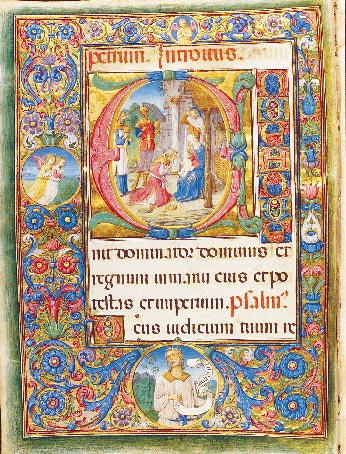 petrum. Introitus.
E
nit dominator dominus et
regnum in manu eius et po
testas et imperium. psalm
Deus iudicium tuum re